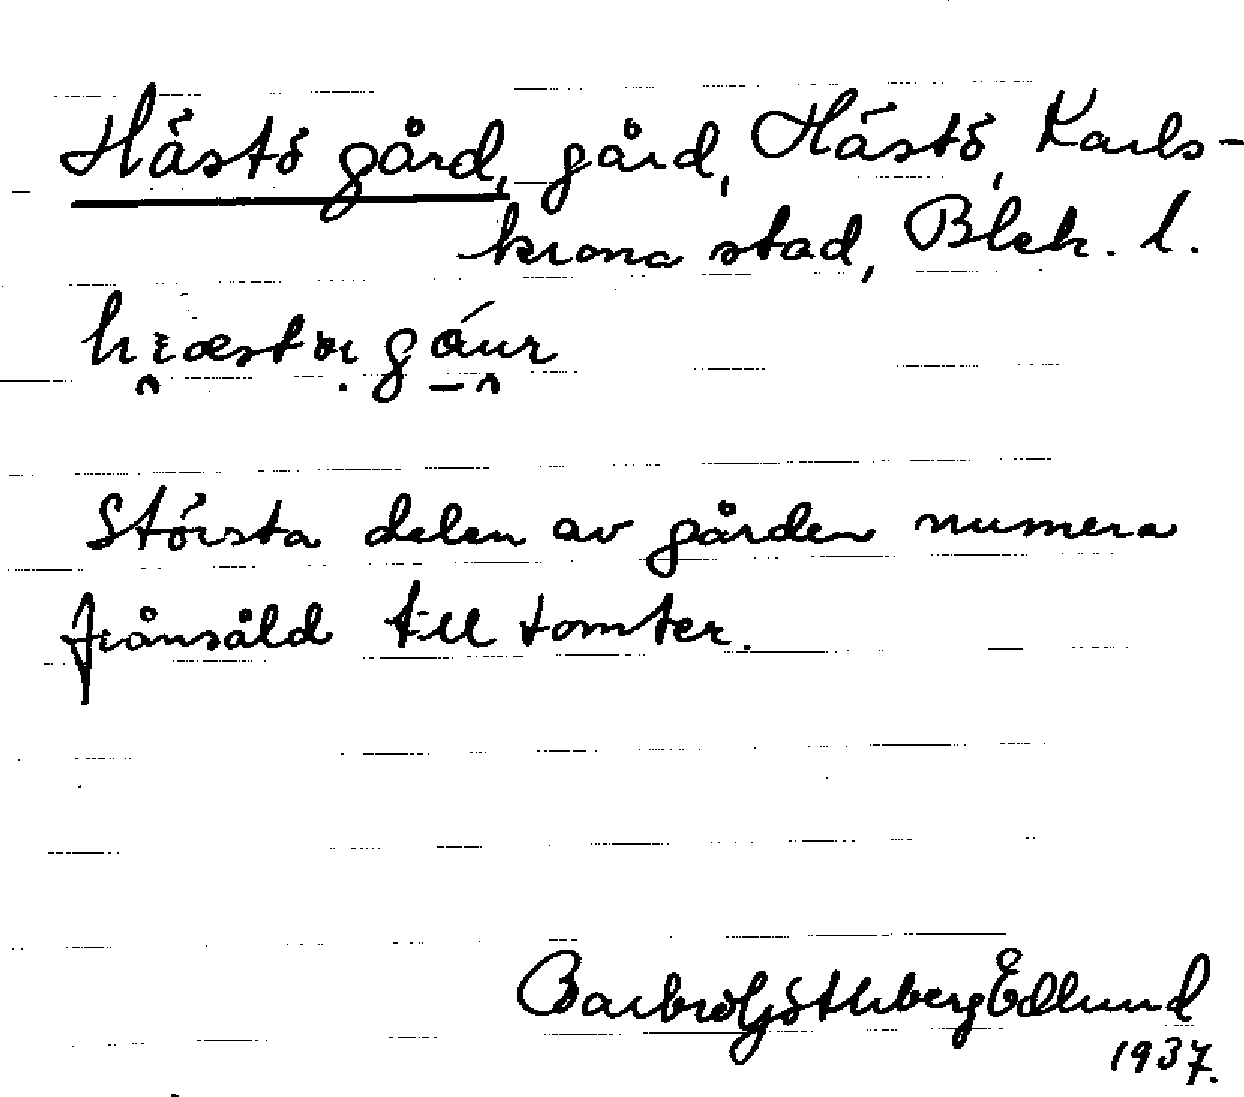 Hästö gård, gård, Hästö, Karls-
krona stad, Blek. l.
Största delen av gården numera
frånsåld till tomter.
Barbro Göthberg Edlund
1937.